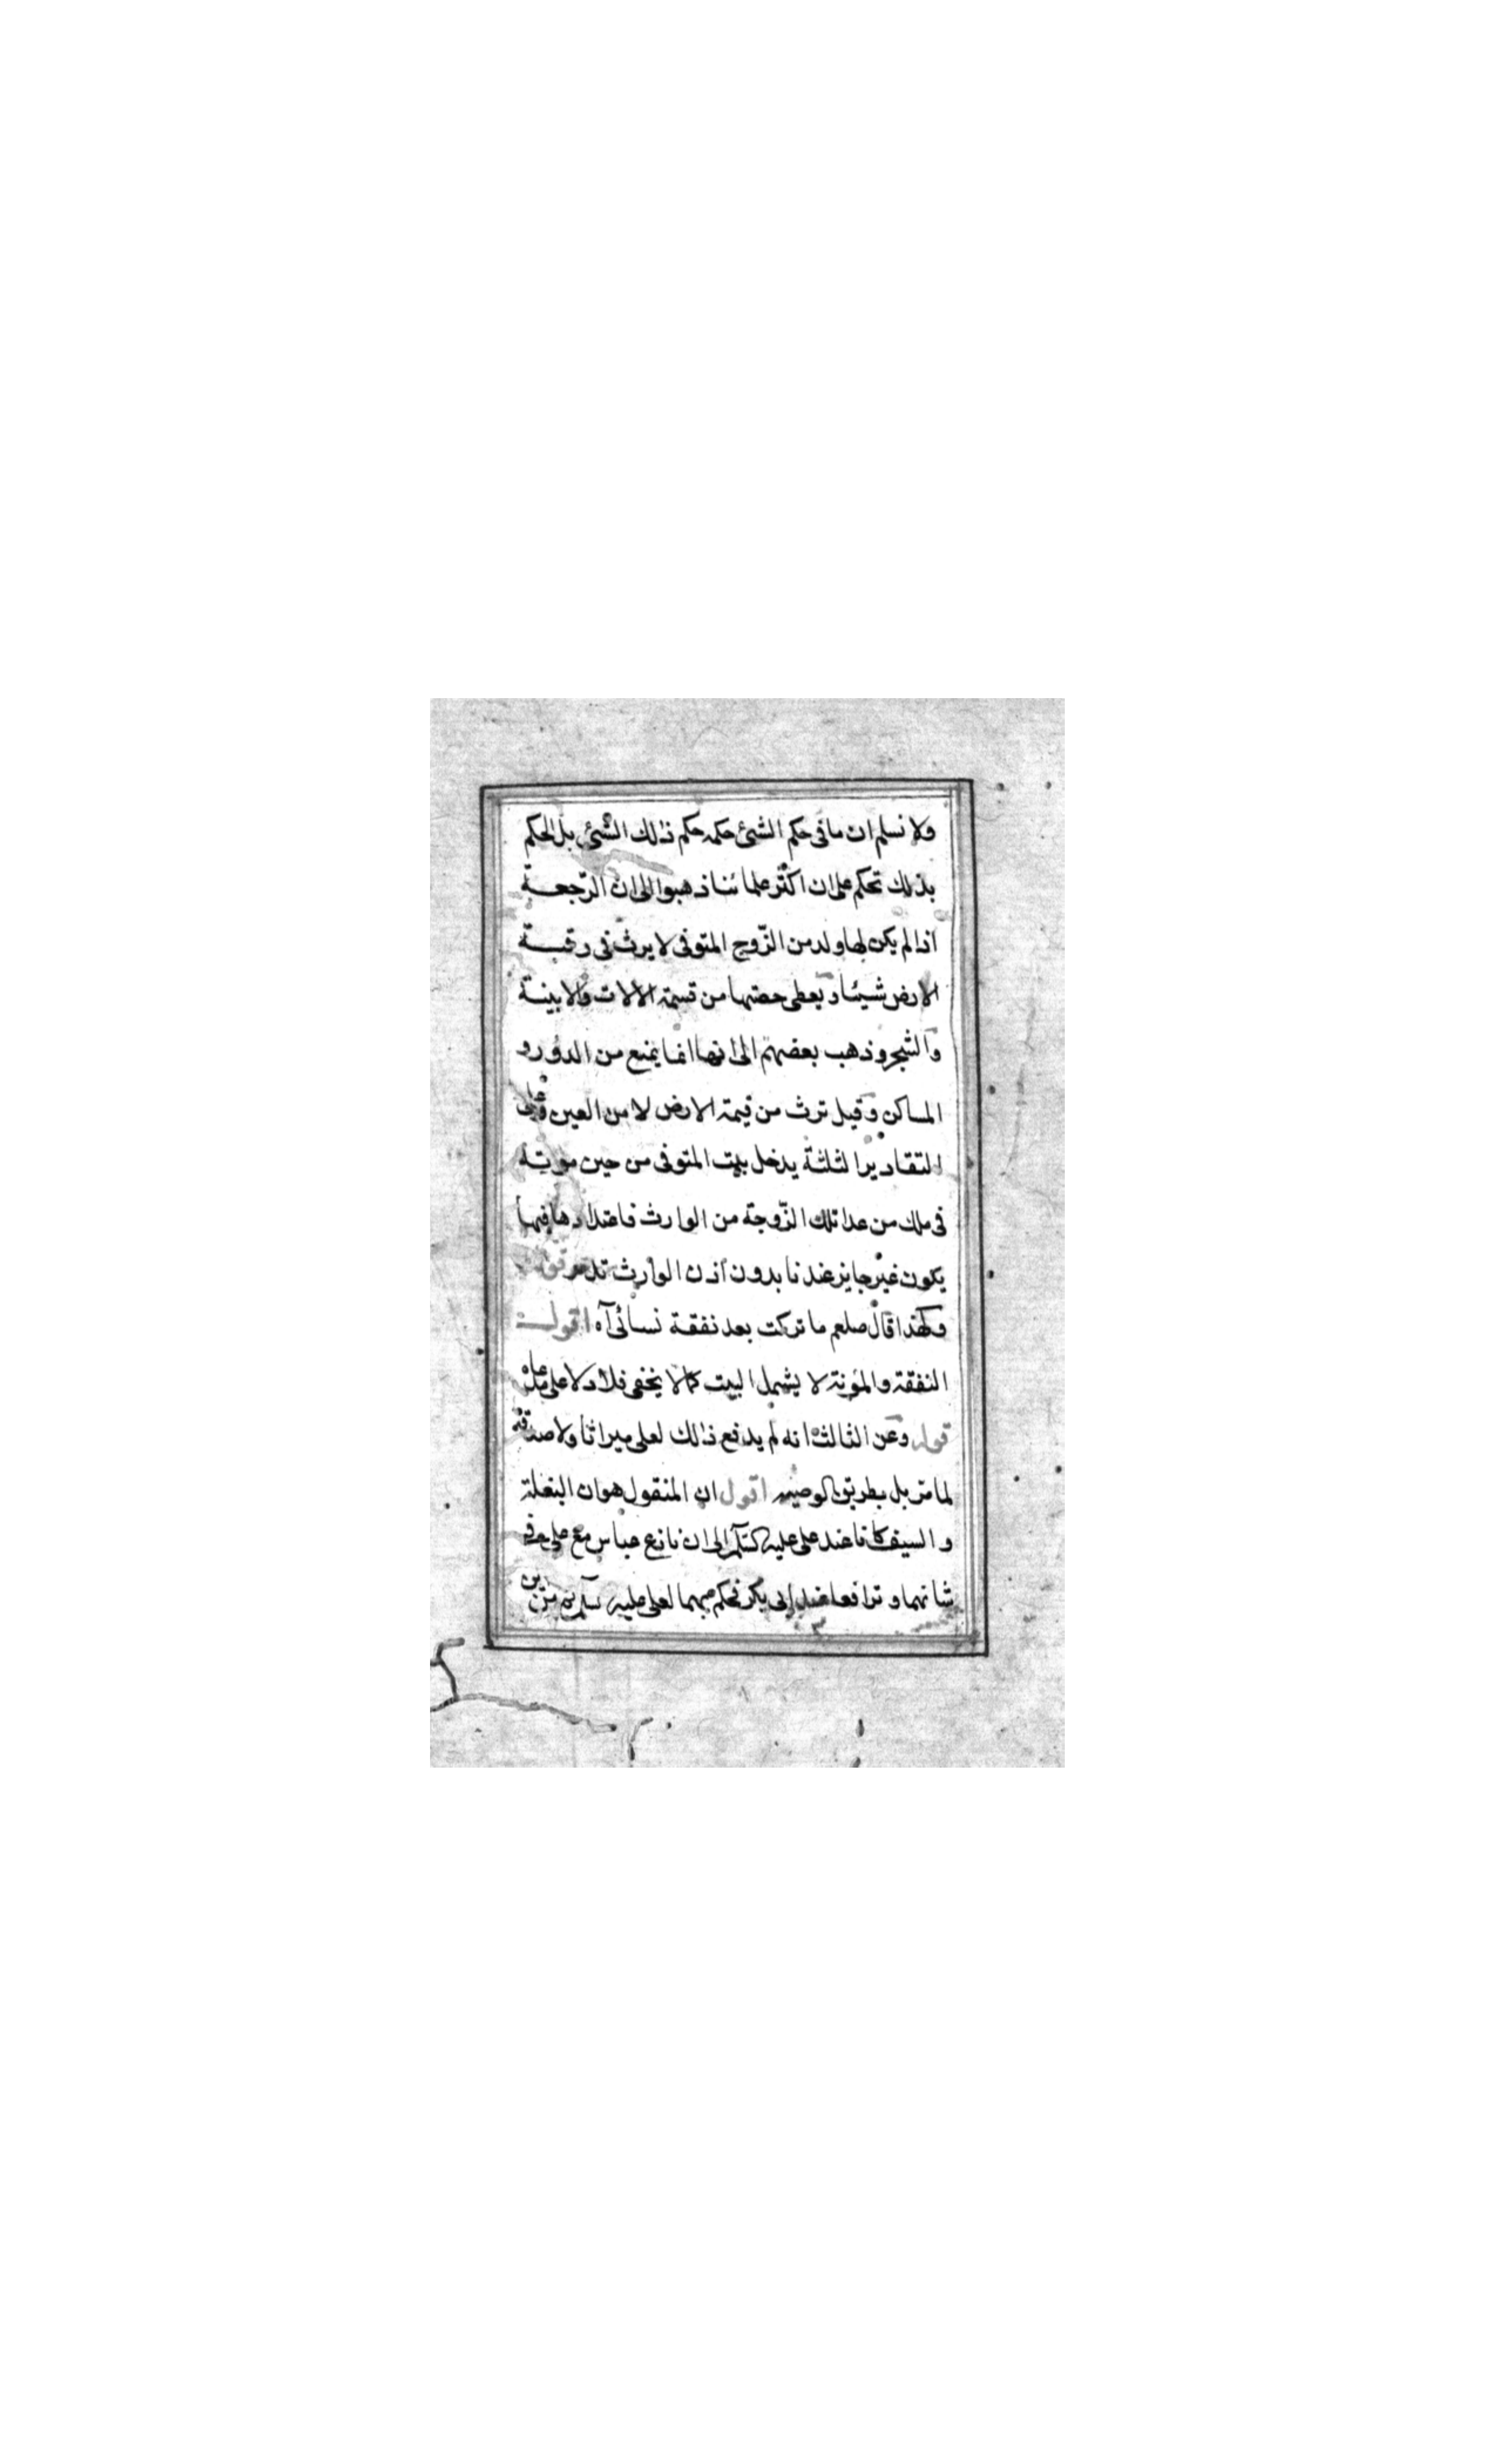 ولا نسلم ان ما فى حكم الشئ حكمه حكم ذالك الشئ بل الحكم
بذلك تحكم على ان اكثر علمائنا ذهبوا الى ان الزّجعة
اذا لم يكن لها ولد من الزّوج المتوفى لا يرث فى رقبة
الارض شيئا و يعطى حصتها من قسمة الالات والابينة
والشجر و ذهب بعضهم الى انها انما يمنع من الدور و
المساكن و قيل ترث من قيمة الارض لا من العين و على
التقادير الثلثة يدخل بيت المتوفى من حين موته
فى ملك من عدا تلك الزّوجة من الوارث فاعتدادها فيها
يكون غير جايز عندنا بدون اذن الوارث تدبر قوله
ولهذا قال صلعم ما تركت بعد نفقة نسائى آه اقول
النفقة والمؤنة لا يشمل البيت كما لا يخفى فلا دلالة على
قوله وعن الثالث انه لم يدفع ذالك لعلى ميراثا ولا صدقة
لما مر بل بطريق الوصيه اقول ان المنقول هو ان البغلة
و السيف كانا عند على عليه الى ان نازع عباس مع على فى
شانهما و ترافعا عند ابى بكر فحكم بهما لعلى عليه